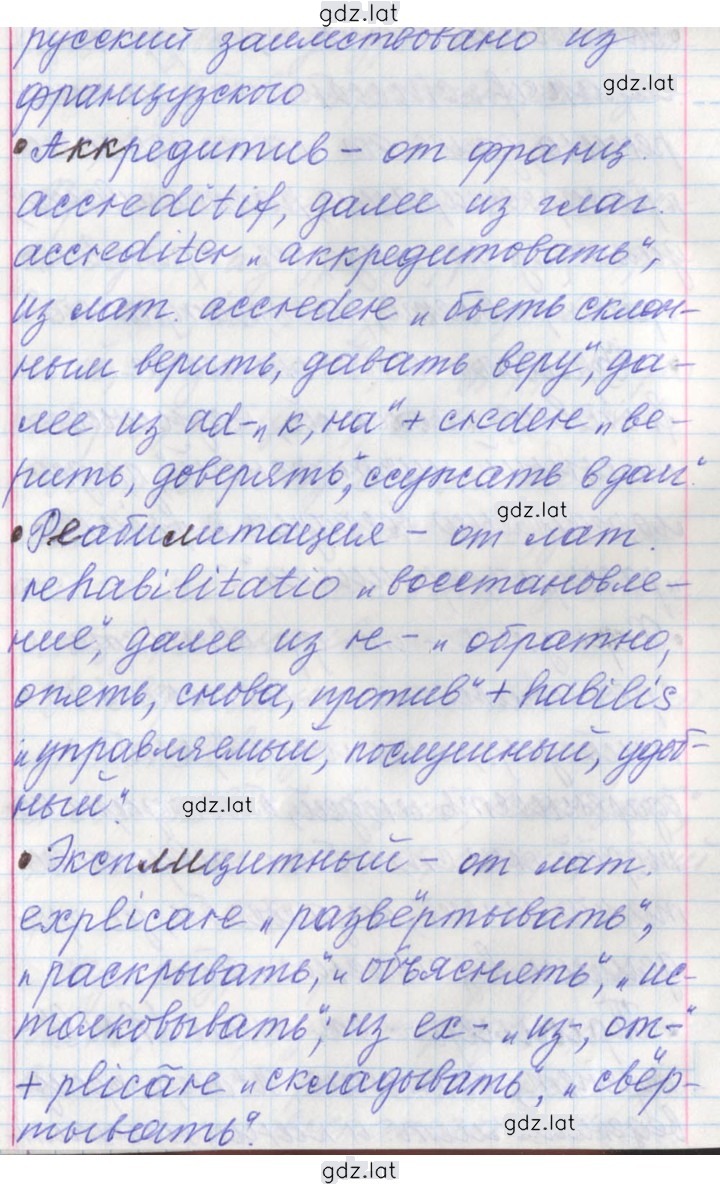 gdz.lat
русский заимствовано из
gdz.lat
французского
• Аккредитив – от франц.
accreditif, далее из глаг.
accrediter „аккредитовать“,
из лат. accredere „быть склон-
ным верить, давать веру“, да-
лее из ad- „к, на“ + credere „ве-
рить, доверять“, ссужать в долг“.
gdz.lat
• Реабилитация – от лат.
rehabilitatio „восстановле-
ние“, далее из re- – „обратно,
опять, снова, против“ + habilis
„управляемый, послушный, удоб-
ный“.
gdz.lat
• Эксплицитный – от лат.
explicare „развёртывать“,
„раскрывать“, „объяснять“, „ис-
толковывать“; из ex- „из-, от-“
+ plicāre „складывать“, „свёр-
тывать“.
gdz.lat
gdz.lat